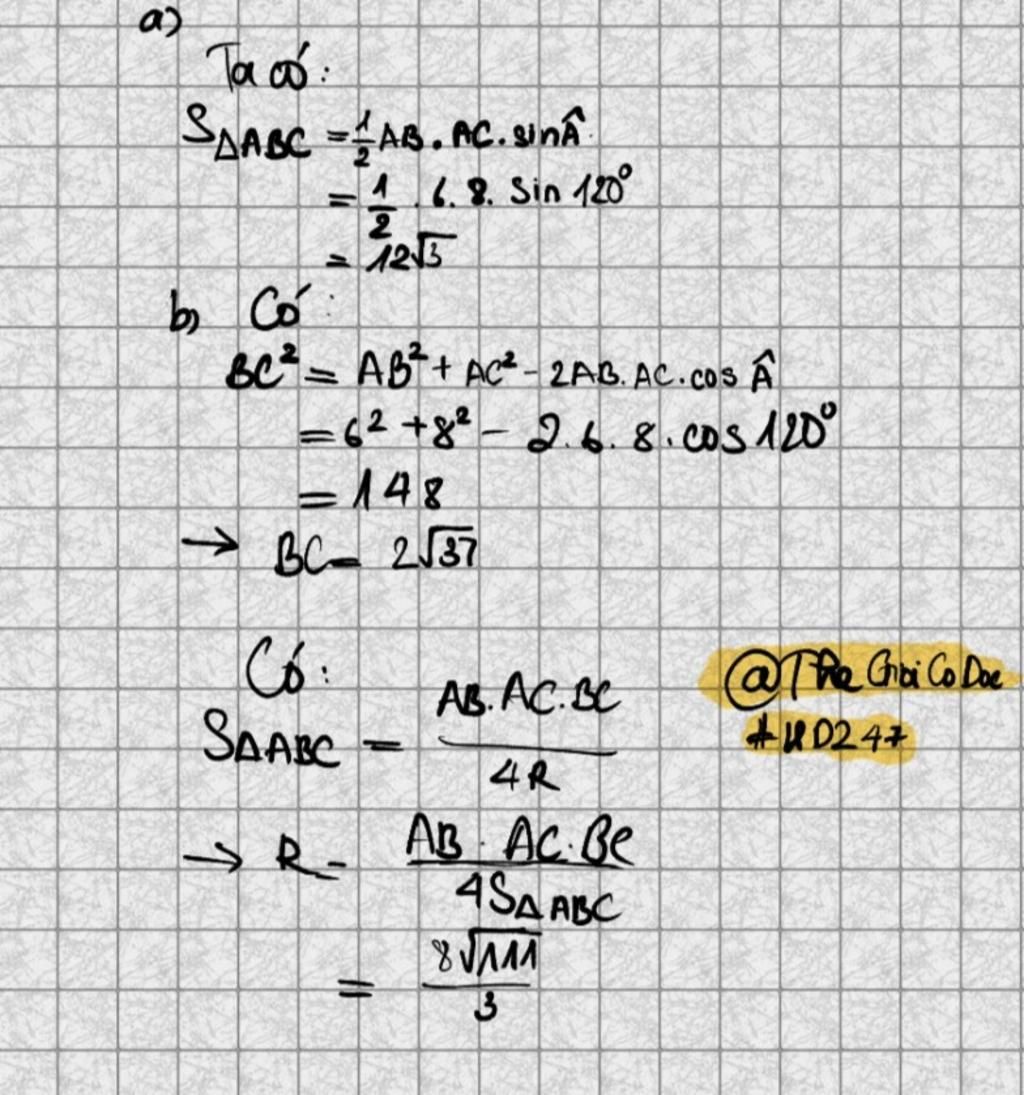 a)
Ta có:
S△ABC = 1/2 AB . AC . sin Â
= 1/2 . 6. 8. Sin 120°
= 12√3
b) Có:
BC² = AB² + AC² - 2AB. AC. cos Â
= 6² + 8² - 2. 6. 8. cos 120°
= 148
→ BC = 2√37
Có:
S△ABC = AB. AC. BC / 4R
→ R = AB . AC. BC / 4S△ABC
= 8√111 / 3